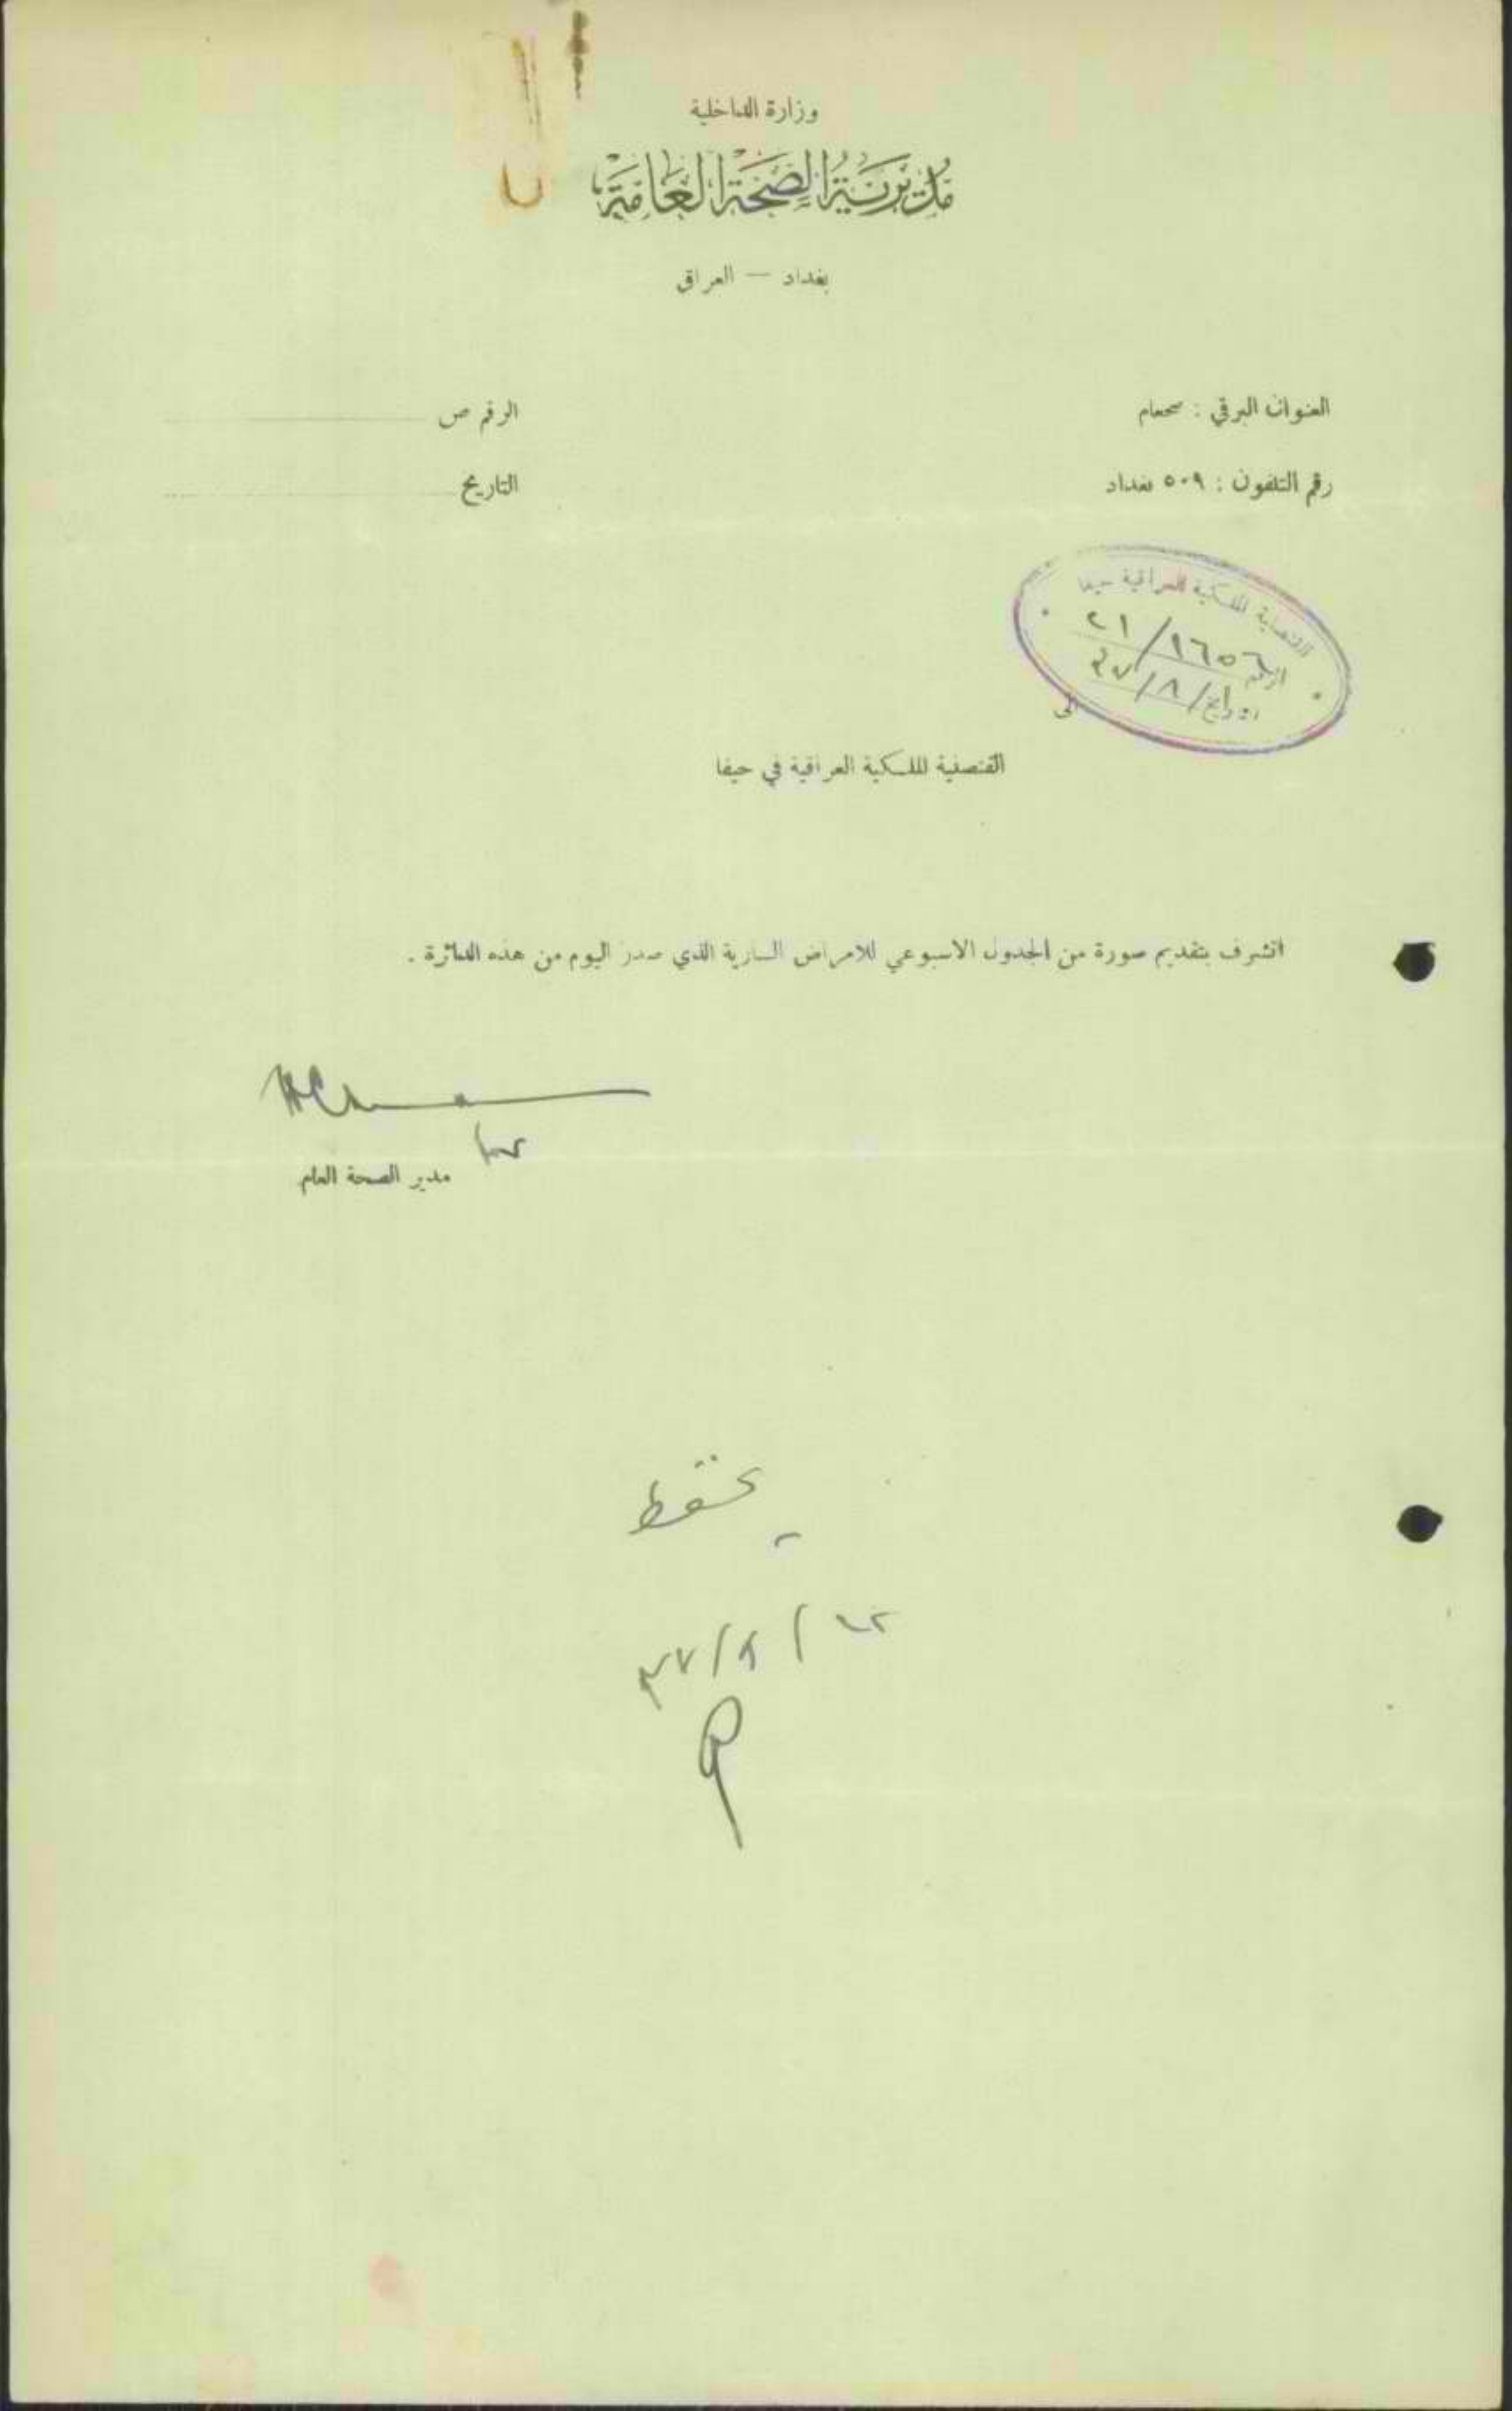 وزارة الداخلية
مديرية الصحة العامة
بغداد — العراق
العنوان البرقي : صحعام
الرقم ص
رقم التلفون : ٥٠٩ بغداد
التاريخ
القنصلية الملكية العراقية حيفا
الرقم ١٦٥٦/٢١
التاريخ / ٨ / ٣٧
الى
القنصلية الملكية العراقية في حيفا
اتشرف بتقديم صورة من الجدول الاسبوعي للامراض السارية الذي صدر اليوم من هذه الدائرة .
مدير الصحة العام
يحفظ
٣٧/٨/